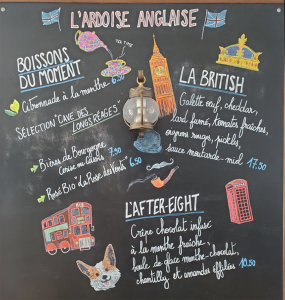 L'ARDOISE ANGLAISE
BOISSONS
DU MOMENT
TEA TIME
Citronnade à la menthe 6.50
SÉLECTION "CAVE DES
LONGS RÈGES"
Bières de Bourgogne
Cerise ou Cassis 7.50
Rosé Bio "La Rose des Vents" 6.50
LA BRITISH
Galette œuf, cheddar,
lard fumé, tomates fraîches,
oignons rouges, pickles,
sauce moutarde-miel 17.50
L'AFTER-EIGHT
Crêpe chocolat infusé
à la menthe fraîche,
boule de glace menthe-chocolat,
chantilly et amandes effilées 10.50